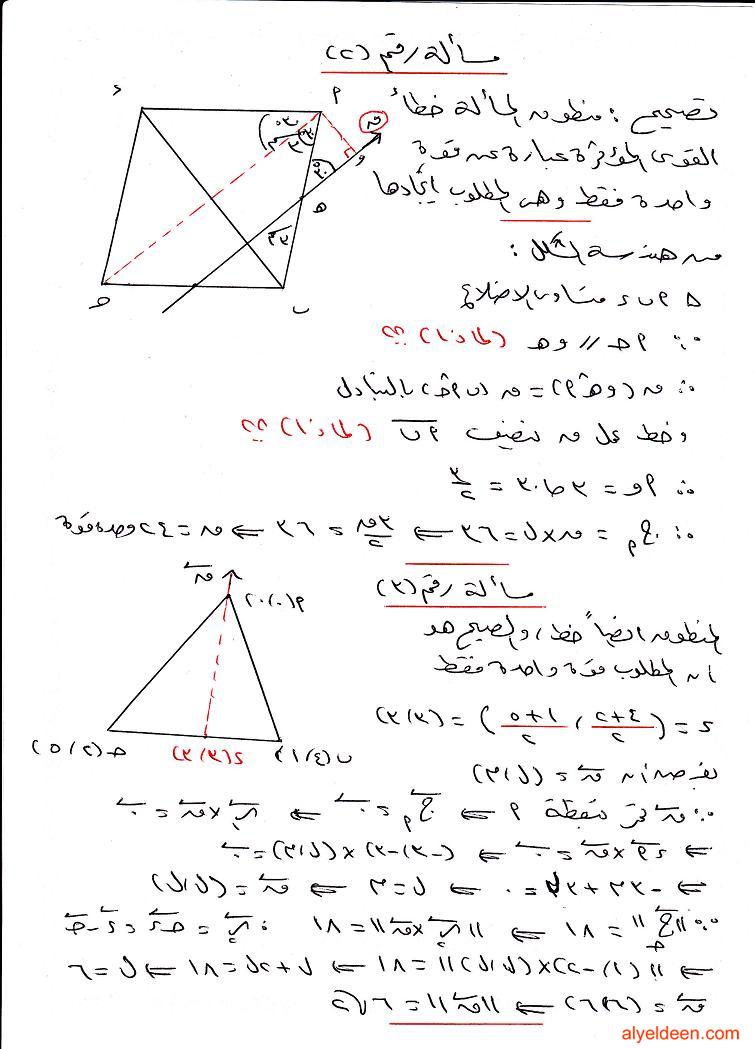 مسألة رقم (٢)
تصحيح : منطوق المسألة خطأ
القوى المؤثرة عبارة عن قوة
واحدة فقط وهى المطلوب إيجادها
من هندسة الشكل :
Δ م ب د متساوى الاضلاع
∴ م ح // و هـ (لماذا) ؟؟
∴ ق (و هـ م) = ق (ب م ح) بالتبادل
وخط عمل ق ينصف م ب (لماذا) ؟؟
∴ م و = ٣ حا ٣٠ = ٣/٢
∴ ج م = ق × ل = ٣٦ ⇐ ٣ق/٢ = ٣٦ ⇐ ق = ٢٤ وحدة قوة
د
م
ق
و
هـ
ح
ب
مسألة رقم (٣)
المنطوق ايضاً خطأ والصحيح هو
ان المطلوب قوة واحدة فقط
د = (٤+٢/٢ ، ١+٥/٢) = (٣،٣)
بفرض أن ق = (ل،م)
∵ ق تمر بنقطة م ⇐ ج م = ٠ ⇐ ر × ق = ٠
⇐ م د × ق = ٠ ⇐ (-٣،-٣) × (ل،م) = ٠
⇐ -٣م + ٣ل = ٠ ⇐ ل = م ⇐ ق = (ل،ل)
∵ ||ج ح|| = ١٨ ⇐ ||ر × ق|| = ١٨ ∵ ر = ح د = د - ح
⇐ ||(١،-٢) × (ل،ل)|| = ١٨ ⇐ ل + ٢ل = ١٨ ⇐ ل = ٦
ق = (٦،٦) ⇐ ||ق|| = ٦√٢
ق
م (٠،٠)
ح (٢،٥)
د (٣،٣)
ب (٤،١)
alyeldeen.com